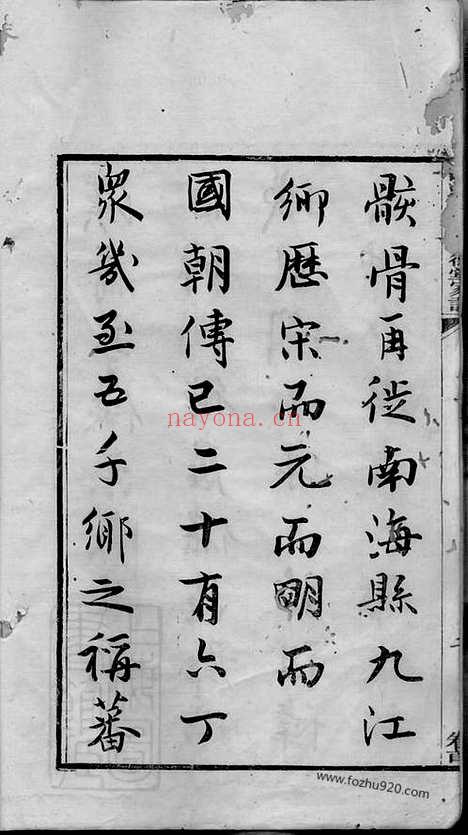 骸骨再徙南海縣九江
鄉歷宋而元而明而
國朝傳已二十有六丁
眾幾至五千鄉之稱蕃
nayona.cn
www.fozhu920.com